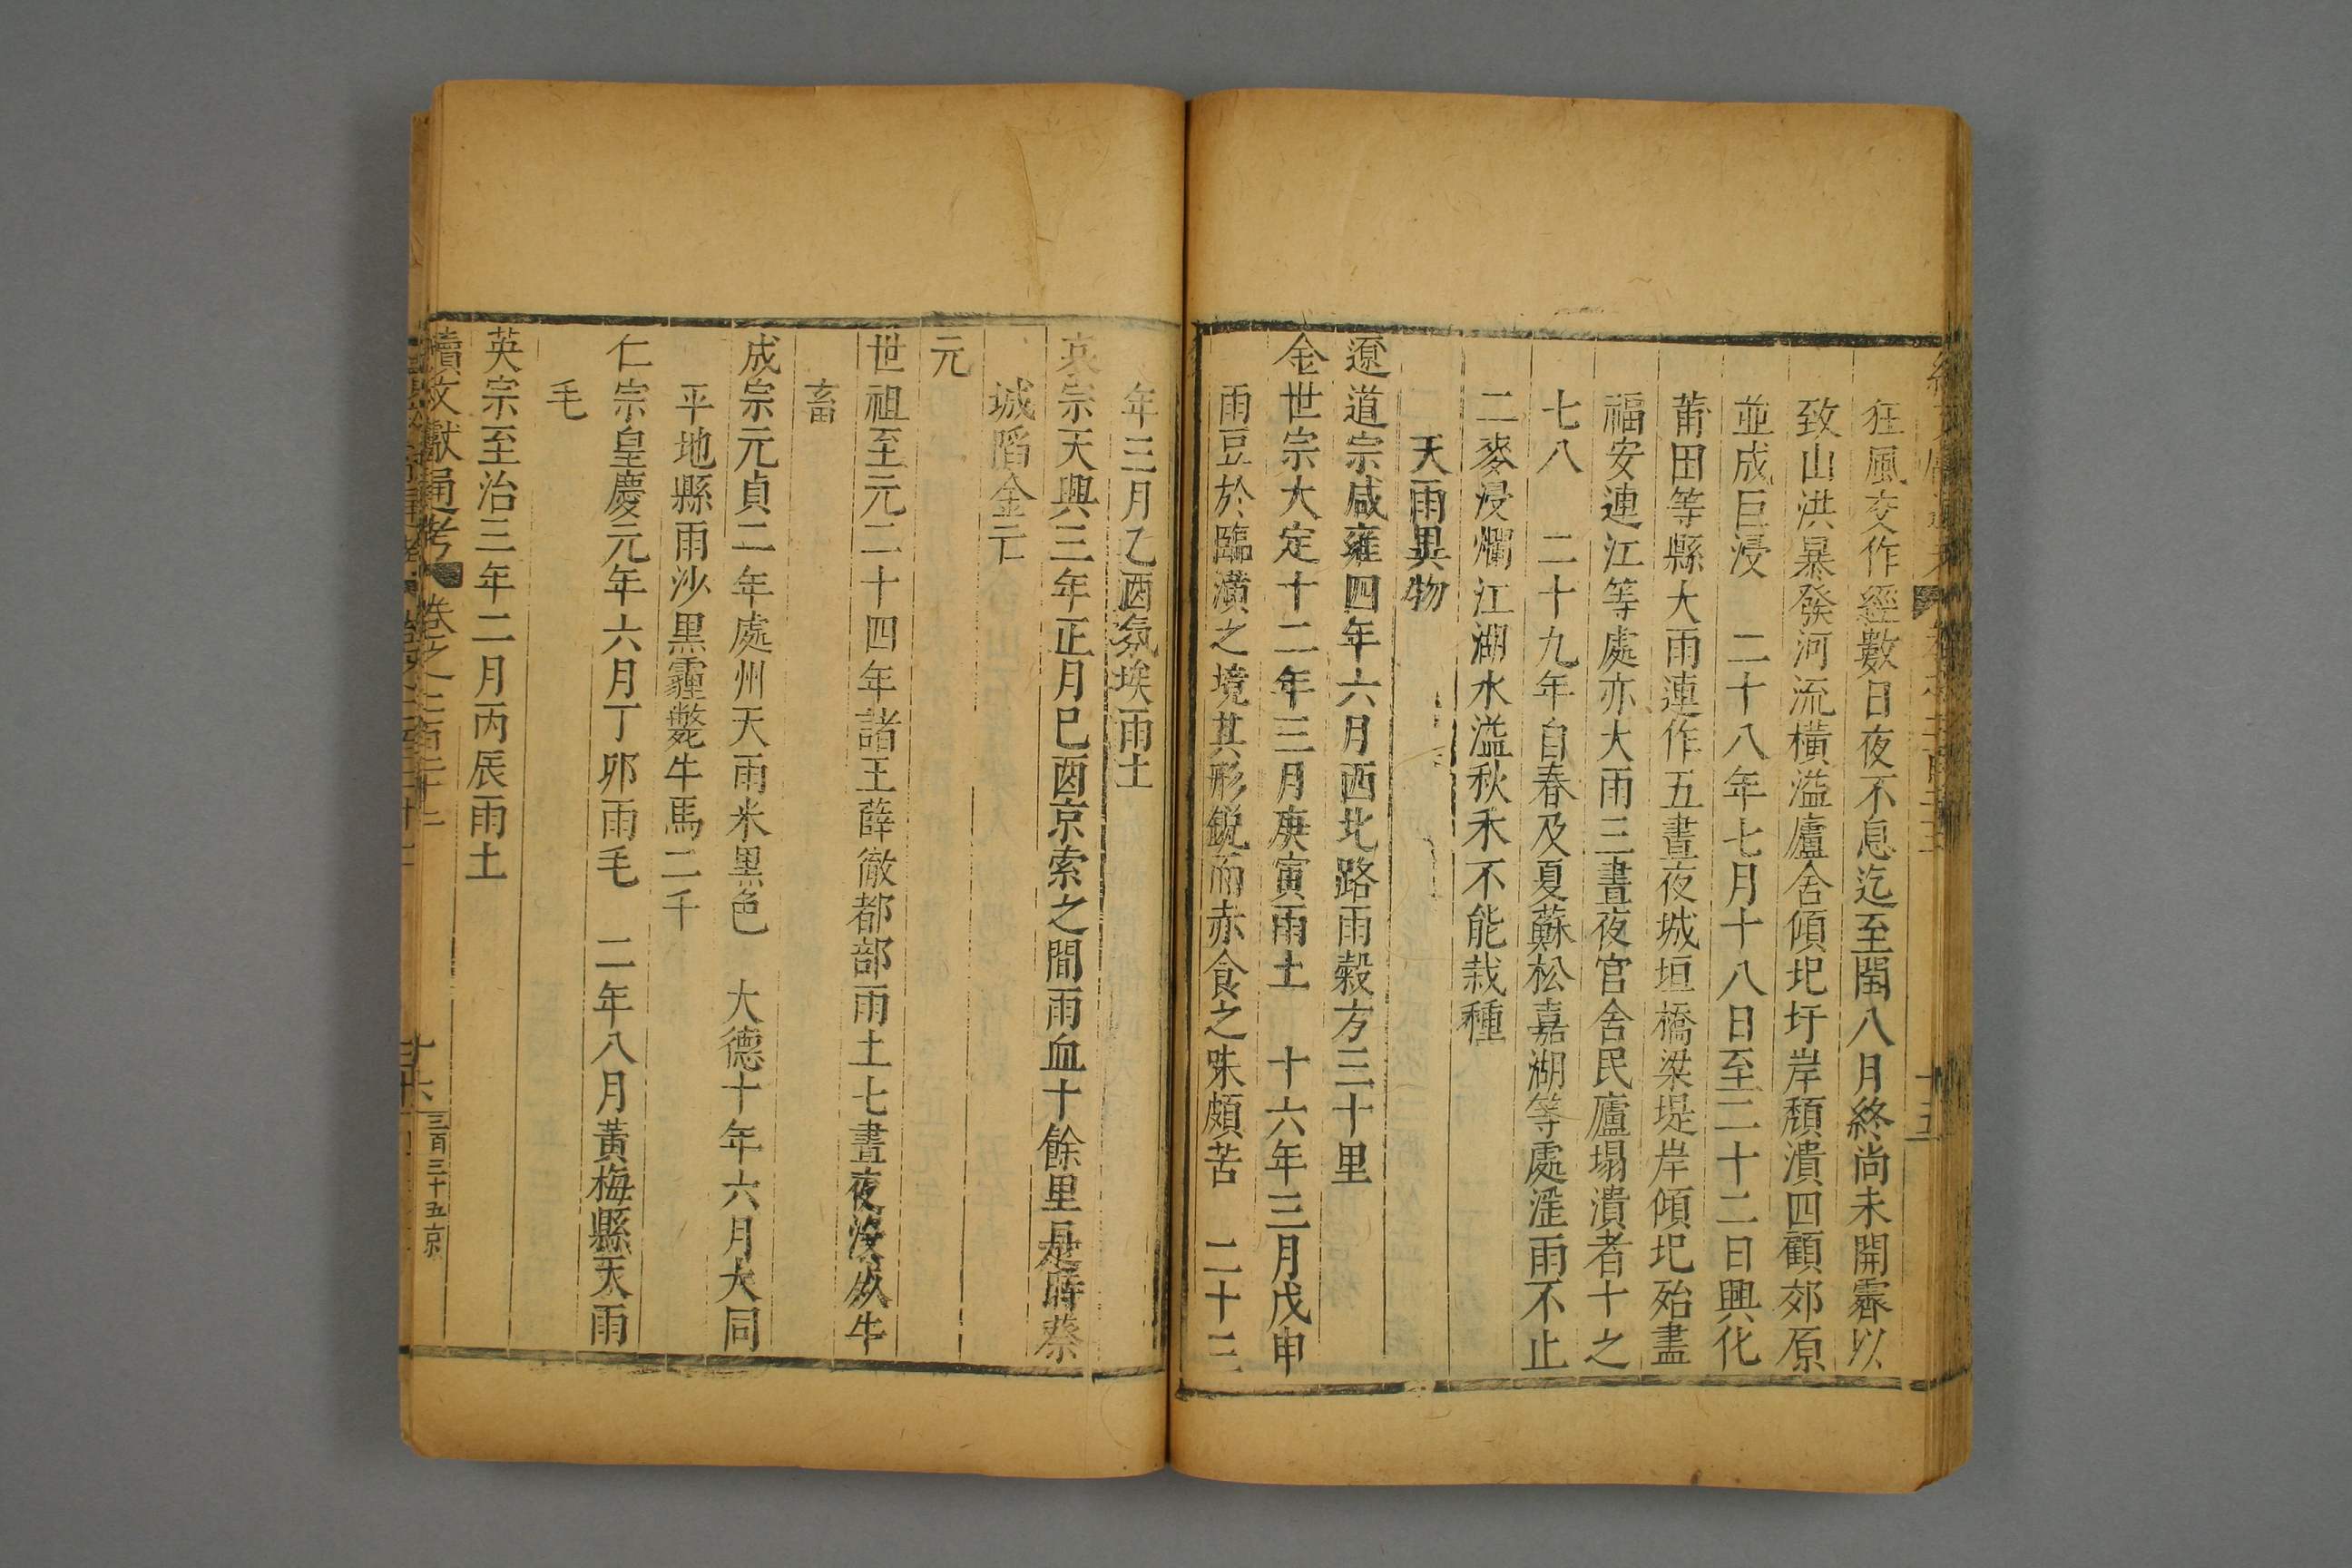 狂風交作經數日夜不息迄至閏八月終尚未開霽以
致山洪暴發河流橫溢廬舍傾圯圩岸頹潰四顧郊原
並成巨浸　二十八年七月十八日至二十二日興化
莆田等縣大雨連作五晝夜城垣橋梁堤岸傾圯殆盡
福安連江等處亦大雨三晝夜官舍民廬塌潰者十之
七八　二十九年自春及夏蘇松嘉湖等處淫雨不止
二麥浸爛江湖水溢秋禾不能栽種
天雨異物
遼道宗咸雍四年六月西北路雨穀方三十里
金世宗大定十二年三月庚寅雨土　十六年三月戊申
雨豆於臨潢之境其形銳而赤食之味頗苦　二十三
年三月乙酉氛埃雨土
哀宗天興三年正月巳酉京索之間雨血十餘里是歲蔡
城陷金亡
元
世祖至元二十四年諸王薛徹都部雨土七晝夜沒死牛
畜
成宗元貞二年處州天雨米黑色　大德十年六月大同
平地縣雨沙黑霾斃牛馬二千
仁宗皇慶元年六月丁卯雨毛　二年八月黃梅縣天雨
毛
英宗至治三年二月丙辰雨土
續文獻通考　卷之二百二十二
十六
三百三十五京